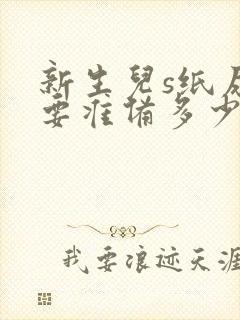 新生兒s纸
要准備多少
我要浪迹天涯